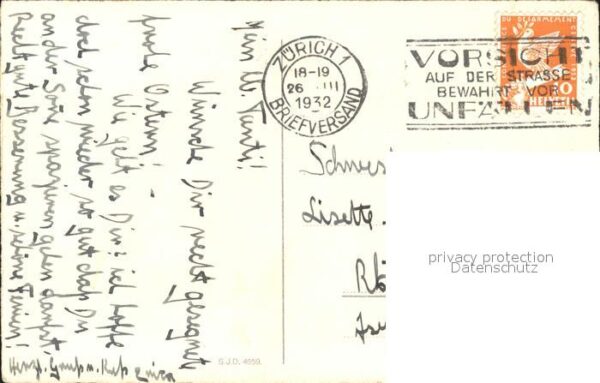 Mein lb. Tanti!
Wünsche Dir recht gesegnete
frohe Ostern!
Wie geht es Dir? ich hoffe
doch schon wieder so gut daß Du
an der Sonne spazieren gehen darfst.
Recht gute Besserung u. schöne Ferien!
Herzl. Gruß u. Kuß
ZÜRICH 1
18-19
26 III
1932
BRIEFVERSAND
DU DESARMEMENT
VORSICHT
AUF DER STRASSE
BEWAHRT VOR
UNFÄLLEN
HELVE
Schwes
Lisette
privacy protection
Datenschutz
S.J.D. 4659.